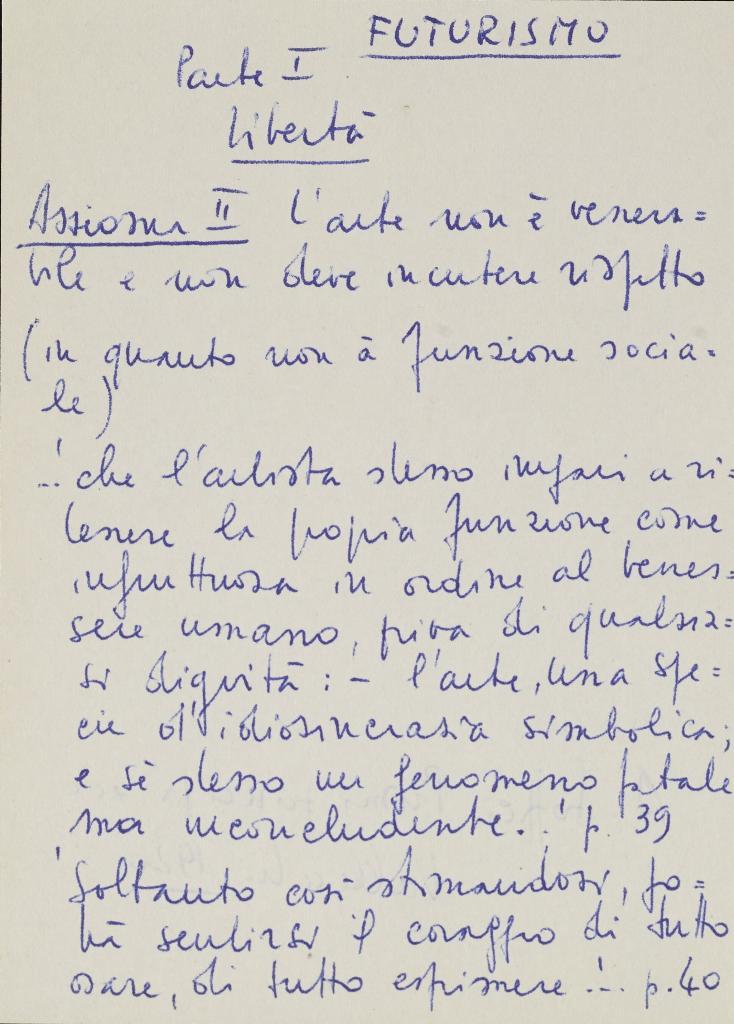 FUTURISMO
Parte I
Libertà
Assioma II L'arte non è venera=
bile e non deve incutere rispetto
(in quanto non à funzione socia-
le)
..' che l'artista stesso impari a ri=
tenere la propia funzione come
infruttuosa in ordine al benes=
sere umano, priva di qualsia=
si dignità: - l'arte, una spe=
cie d'idiosincrasia simbolica;
e sè stesso un fenomeno fatale
ma inconcludente.' p. 39
'Soltanto così stimandosi, po=
trà sentirsi il coraggio di tutto
osare, di tutto esprimere .'.. p. 40